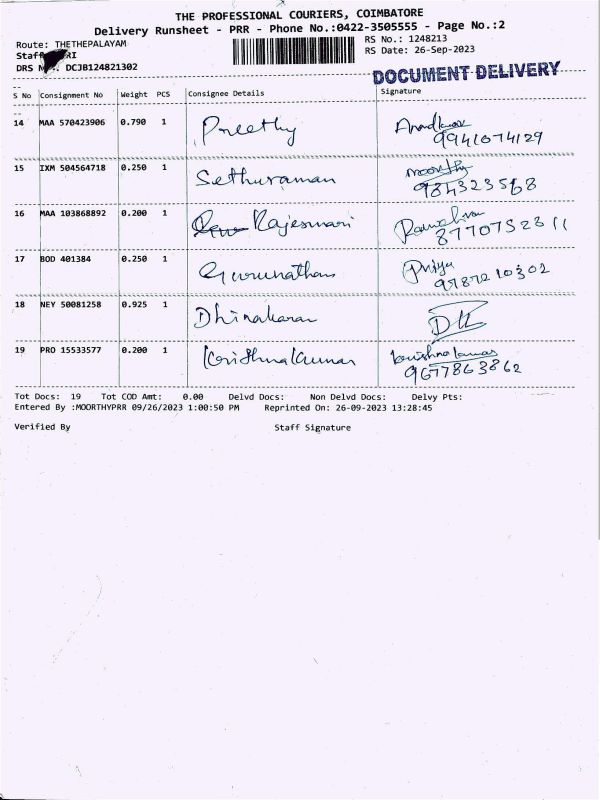 THE PROFESSIONAL COURIERS, COIMBATORE
Delivery Runsheet - PRR - Phone No.:0422-3505555 - Page No.:2
Route: THETHEPALAYAM
RS No.: 1248213
Staff RI
RS Date: 26-Sep-2023
DRS N DCJB124821302
DOCUMENT DELIVERY
S No Consignment No Weight PCS Consignee Details Signature
14 MAA 570423906 0.790 1 Preethy
9941074129
15 IXM 504564718 0.250 1 Sethuraman moorthy
984323568
16 MAA 103868892 0.200 1 Rajeswari
8770752811
17 BOD 401384 0.250 1 Gurunathan Priya
9787210302
18 NEY 50081258 0.925 1 Dhinakaran DK
19 PRO 15533577 0.200 1 Krishnakumar krishnakumar
9677863862
Tot Docs: 19 Tot COD Amt: 0.00 Delvd Docs: Non Delvd Docs: Delvy Pts:
Entered By :MOORTHYPRR 09/26/2023 1:00:50 PM Reprinted On: 26-09-2023 13:28:45
Verified By Staff Signature